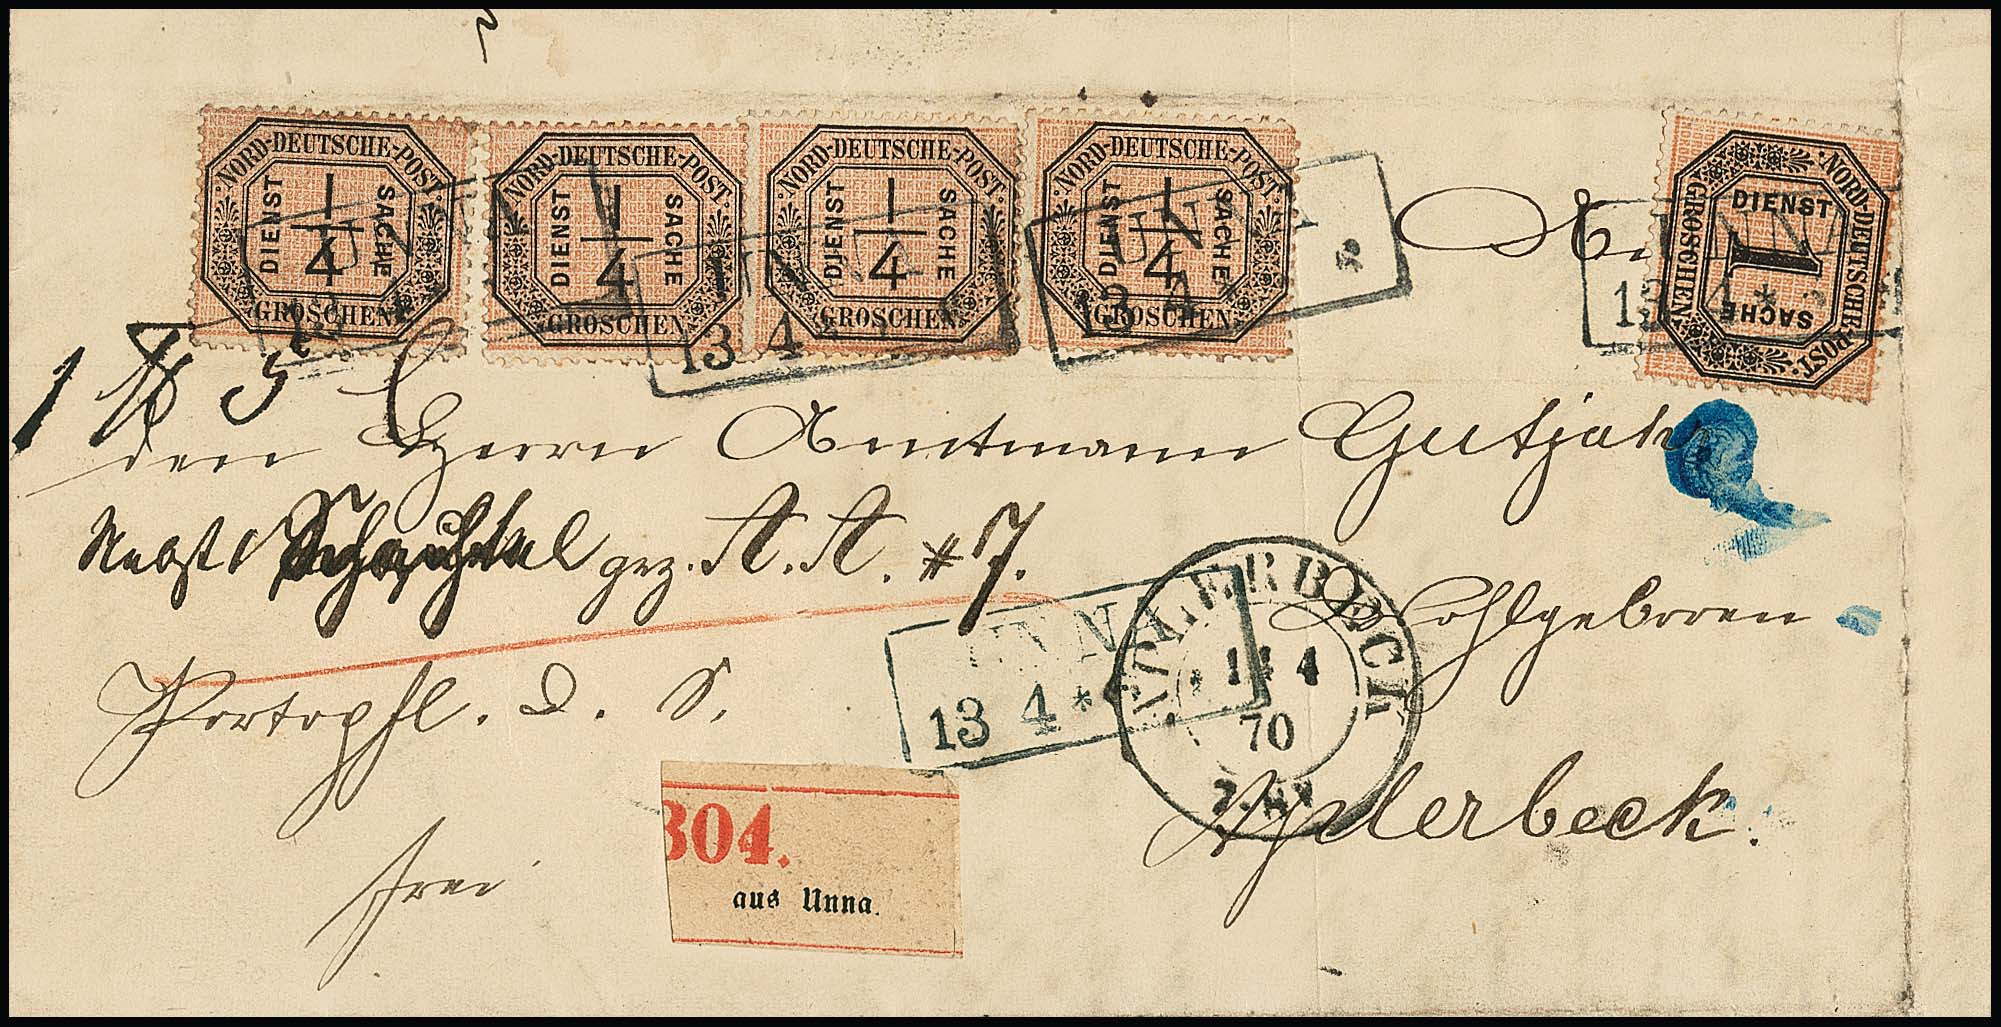 NORD-DEUTSCHE-POST
DIENST 1/4 SACHE
GROSCHEN
NORD-DEUTSCHE-POST
DIENST 1/4 SACHE
GROSCHEN
NORD-DEUTSCHE-POST
DIENST 1/4 SACHE
GROSCHEN
NORD-DEUTSCHE-POST
DIENST 1/4 SACHE
GROSCHEN
NORD-DEUTSCHE-POST
DIENST 1 SACHE
GROSCHEN
UNNA
13 4 *
UNNA
13 4
UNNA
13 4 *
An
1 5
den Herrn Amtmann Gutjahr
Nebst 1 Schachtel gez. A. A. # 7.
Wohlgeboren
UNNA
13 4 *
APLERBECK
14 4
70
Portopfl. D. S.
Aplerbeck.
frei
304.
aus Unna.